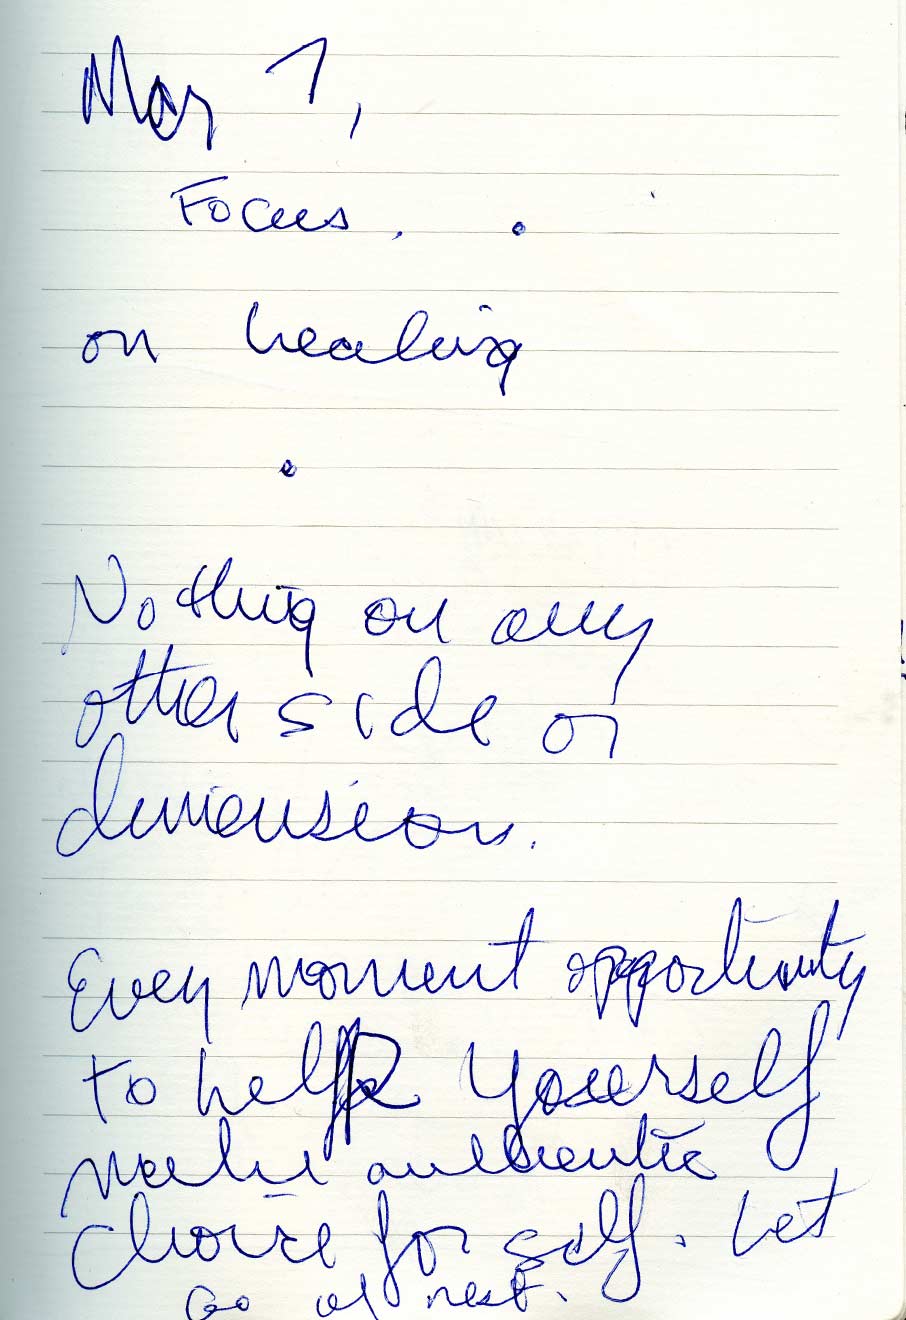 May 7,
Focus.
on healing
Nothing on any
other side or
dimension.
Every moment opportunity
to help yourself
make authentic
choice for self. Let
Go of rest.